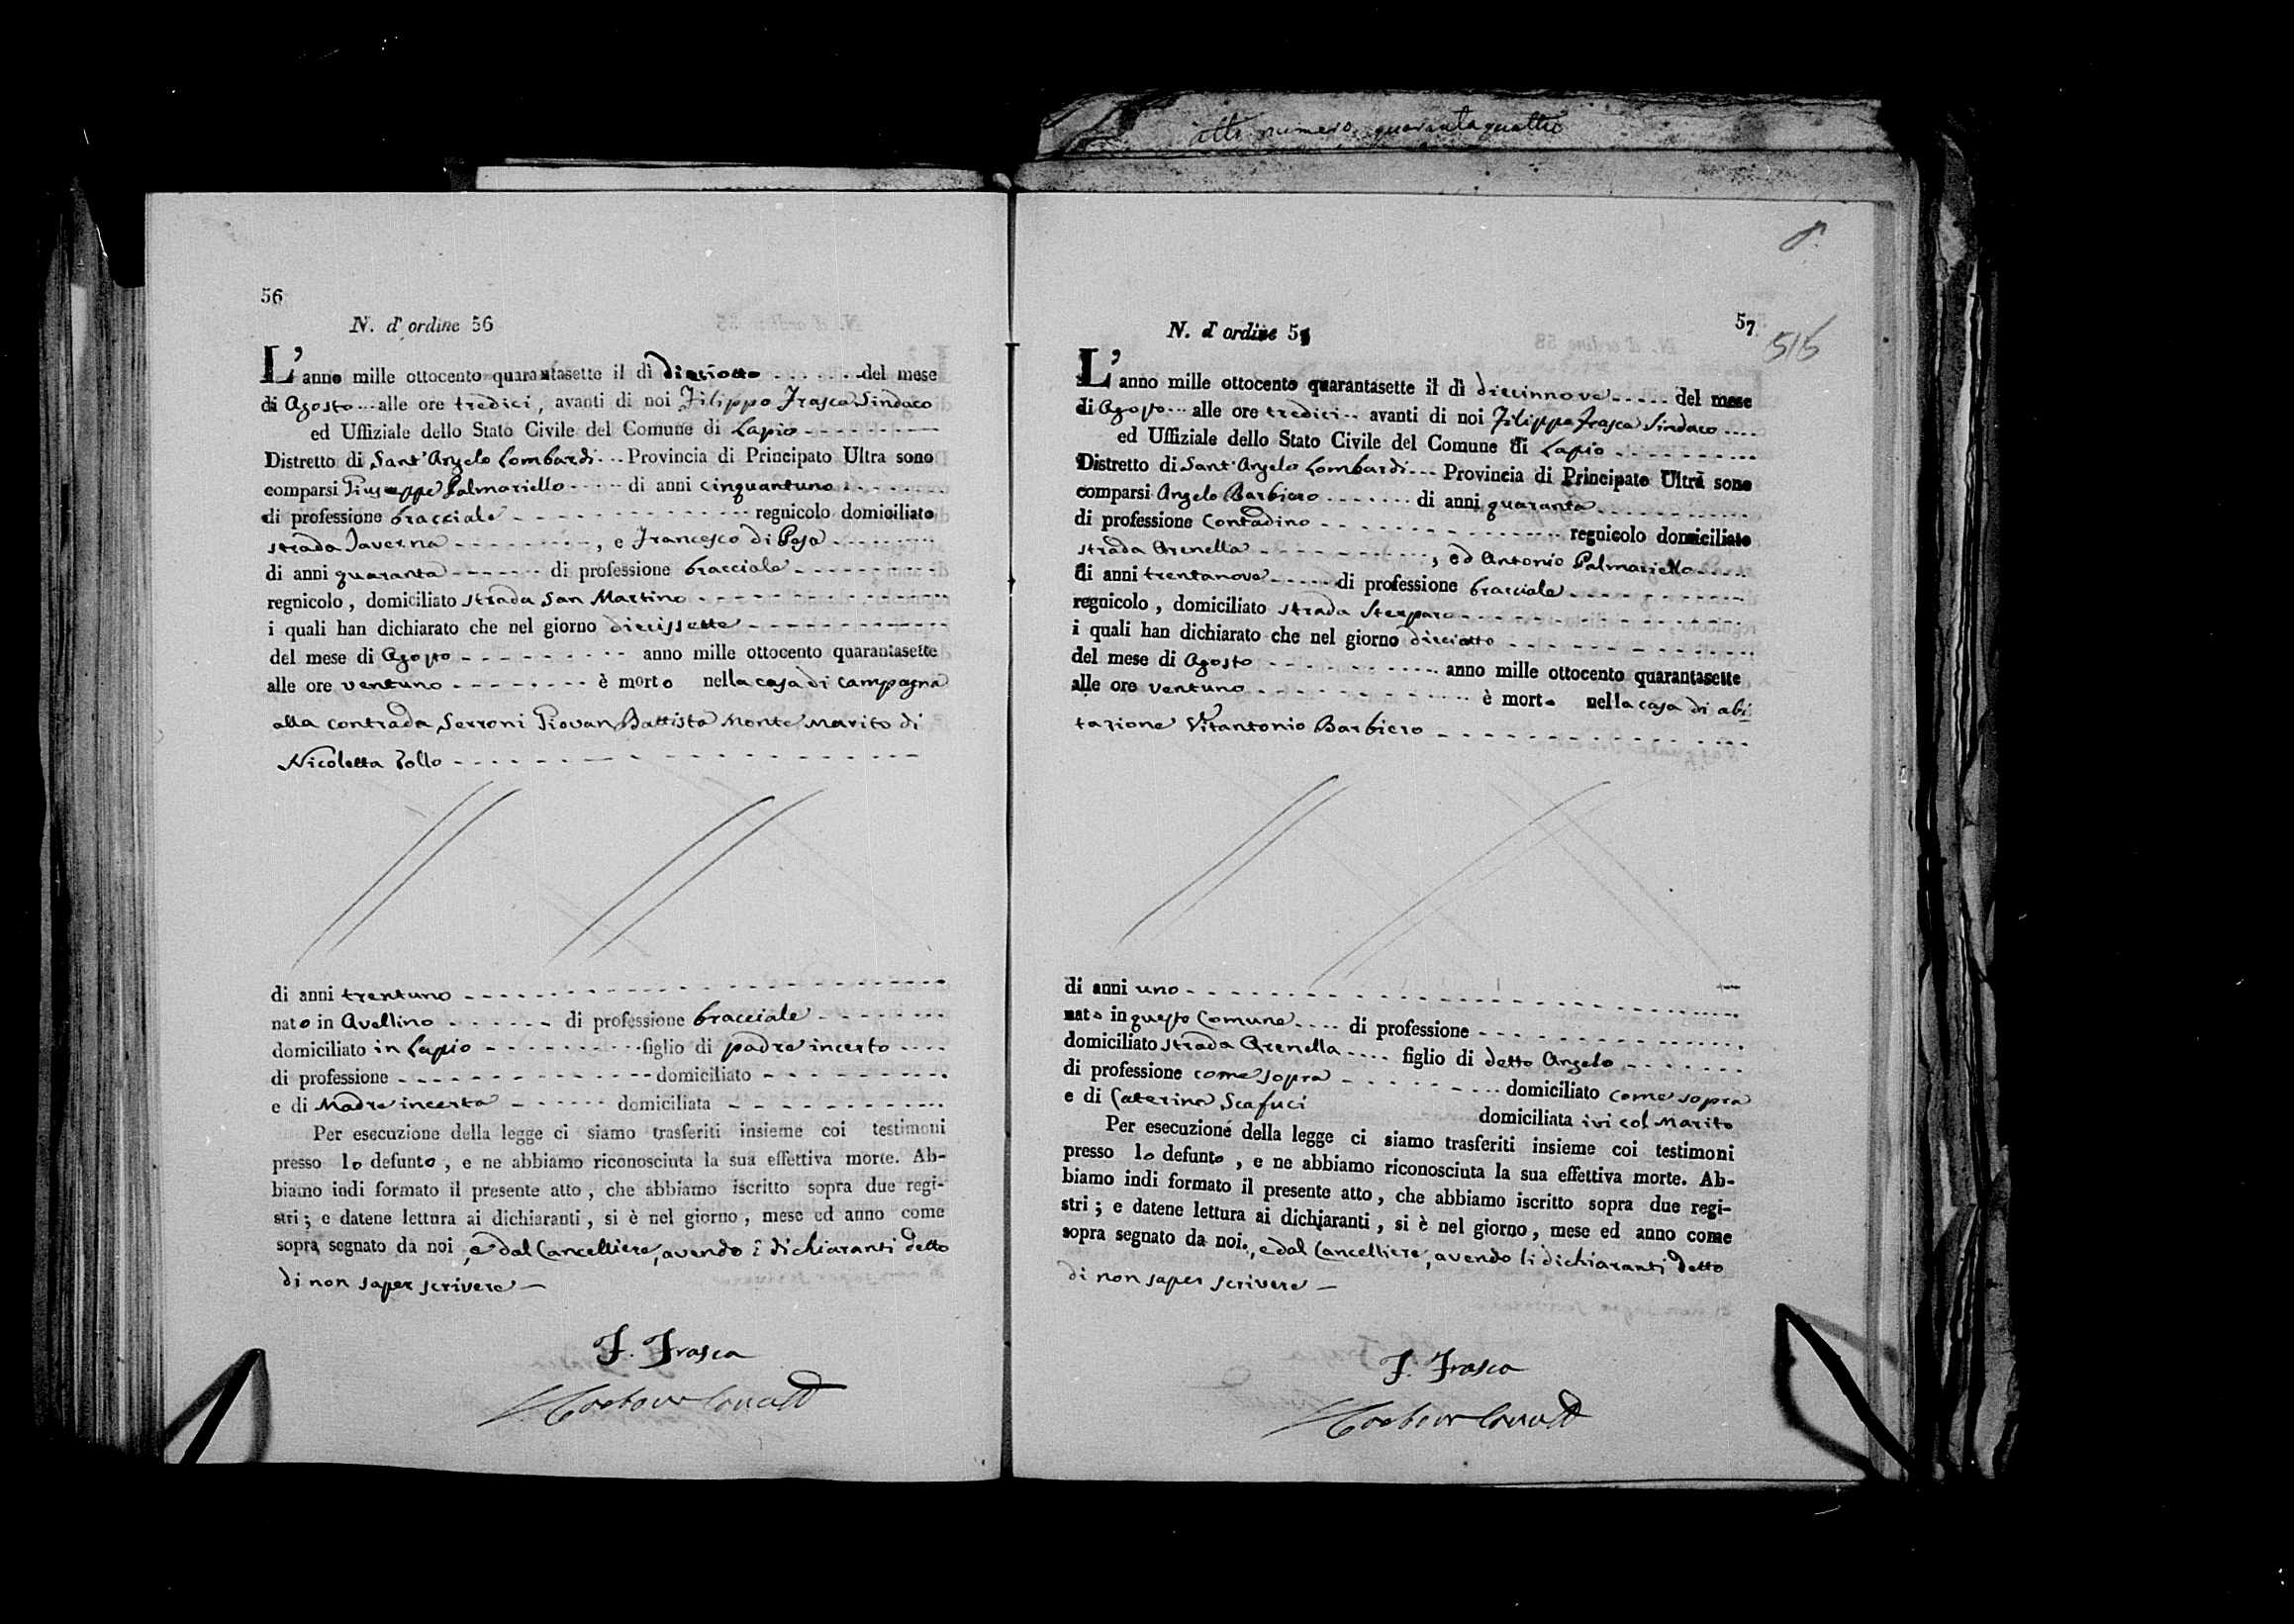 atto numero quarantaquattro
56
N. d'ordine 56
L'anno mille ottocento quarantasette il dì dieciotto del mese
di Agosto alle ore tredici, avanti di noi Filippo Frasca Sindaco
ed Uffiziale dello Stato Civile del Comune di Lapio
Distretto di Sant'Angelo Lombardi Provincia di Principato Ultra sono
comparsi Giuseppe Palmariello di anni cinquantuno
di professione bracciale regnicolo domiciliato
strada Taverna, e Francesco di Pesa
di anni quaranta di professione bracciale
regnicolo, domiciliato strada San Martino
i quali han dichiarato che nel giorno diecissette
del mese di Agosto anno mille ottocento quarantasette
alle ore ventuno è morto nella casa di campagna
alla contrada Serroni Giovan Battista Monte Marito di
Nicoletta Zollo
di anni trentuno
nato in Avellino di professione bracciale
domiciliato in Lapio figlio di padre incerto
di professione domiciliato
e di Madre incerta domiciliata
Per esecuzione della legge ci siamo trasferiti insieme coi testimoni
presso lo defunto, e ne abbiamo riconosciuta la sua effettiva morte. Ab-
biamo indi formato il presente atto, che abbiamo iscritto sopra due regi-
stri; e datene lettura ai dichiaranti, si è nel giorno, mese ed anno come
sopra segnato da noi, e dal Cancelliere, avendo i dichiaranti detto
di non saper scrivere
F. Frasca
57
516
N. d'ordine 57
L'anno mille ottocento quarantasette il dì diecinnove del mese
di Agosto alle ore tredici avanti di noi Filippo Frasca Sindaco
ed Uffiziale dello Stato Civile del Comune di Lapio
Distretto di Sant'Angelo Lombardi Provincia di Principato Ultra sono
comparsi Angelo Barbiero di anni quaranta
di professione Contadino regnicolo domiciliato
strada Arenella, ed Antonio Palmariello
di anni trentanove di professione bracciale
regnicolo, domiciliato strada
i quali han dichiarato che nel giorno dieciotto
del mese di Agosto anno mille ottocento quarantasette
alle ore ventuno è morto nella casa di abi
tazione Vitantonio Barbiero
di anni uno
nato in questo Comune di professione
domiciliato strada Arenella figlio di detto Angelo
di professione come sopra domiciliato come sopra
e di Caterina Scafuci domiciliata ivi col Marito
Per esecuzione della legge ci siamo trasferiti insieme coi testimoni
presso lo defunto, e ne abbiamo riconosciuta la sua effettiva morte. Ab-
biamo indi formato il presente atto, che abbiamo iscritto sopra due regi-
stri; e datene lettura ai dichiaranti, si è nel giorno, mese ed anno come
sopra segnato da noi., e dal Cancelliere, avendo li dichiaranti detto
di non saper scrivere
F. Frasca